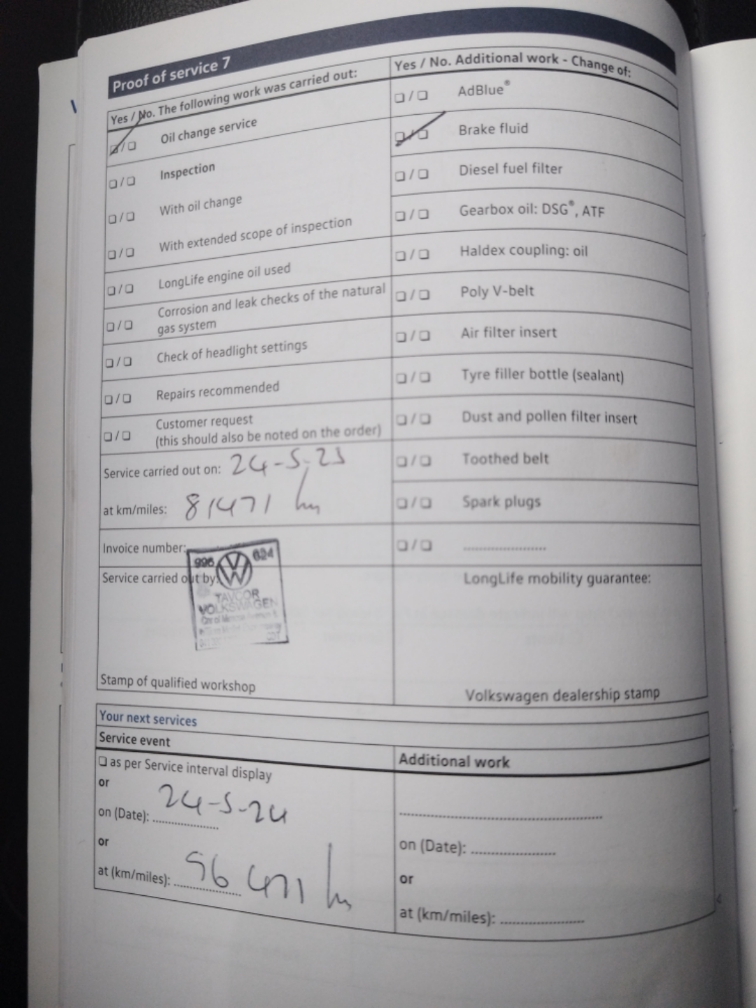 Proof of service 7
Yes / No. The following work was carried out:
☑/☐ Oil change service
☐/☐ Inspection
☐/☐ With oil change
☐/☐ With extended scope of inspection
☐/☐ LongLife engine oil used
☐/☐ Corrosion and leak checks of the natural
gas system
☐/☐ Check of headlight settings
☐/☐ Repairs recommended
☐/☐ Customer request
(this should also be noted on the order)
Service carried out on: 24-5-23
at km/miles: 81471 km
Invoice number:
Service carried out by:
996 634
VW
TAVCOR
VOLKSWAGEN
Stamp of qualified workshop
Yes / No. Additional work - Change of:
☐/☐ AdBlue®
☑/☐ Brake fluid
☐/☐ Diesel fuel filter
☐/☐ Gearbox oil: DSG®, ATF
☐/☐ Haldex coupling: oil
☐/☐ Poly V-belt
☐/☐ Air filter insert
☐/☐ Tyre filler bottle (sealant)
☐/☐ Dust and pollen filter insert
☐/☐ Toothed belt
☐/☐ Spark plugs
☐/☐ ....................
LongLife mobility guarantee:
Volkswagen dealership stamp
Your next services
Service event
☐ as per Service interval display
or
on (Date): 24-5-24
or
at (km/miles): 96 471 km
Additional work
on (Date): ....................
or
at (km/miles): ....................